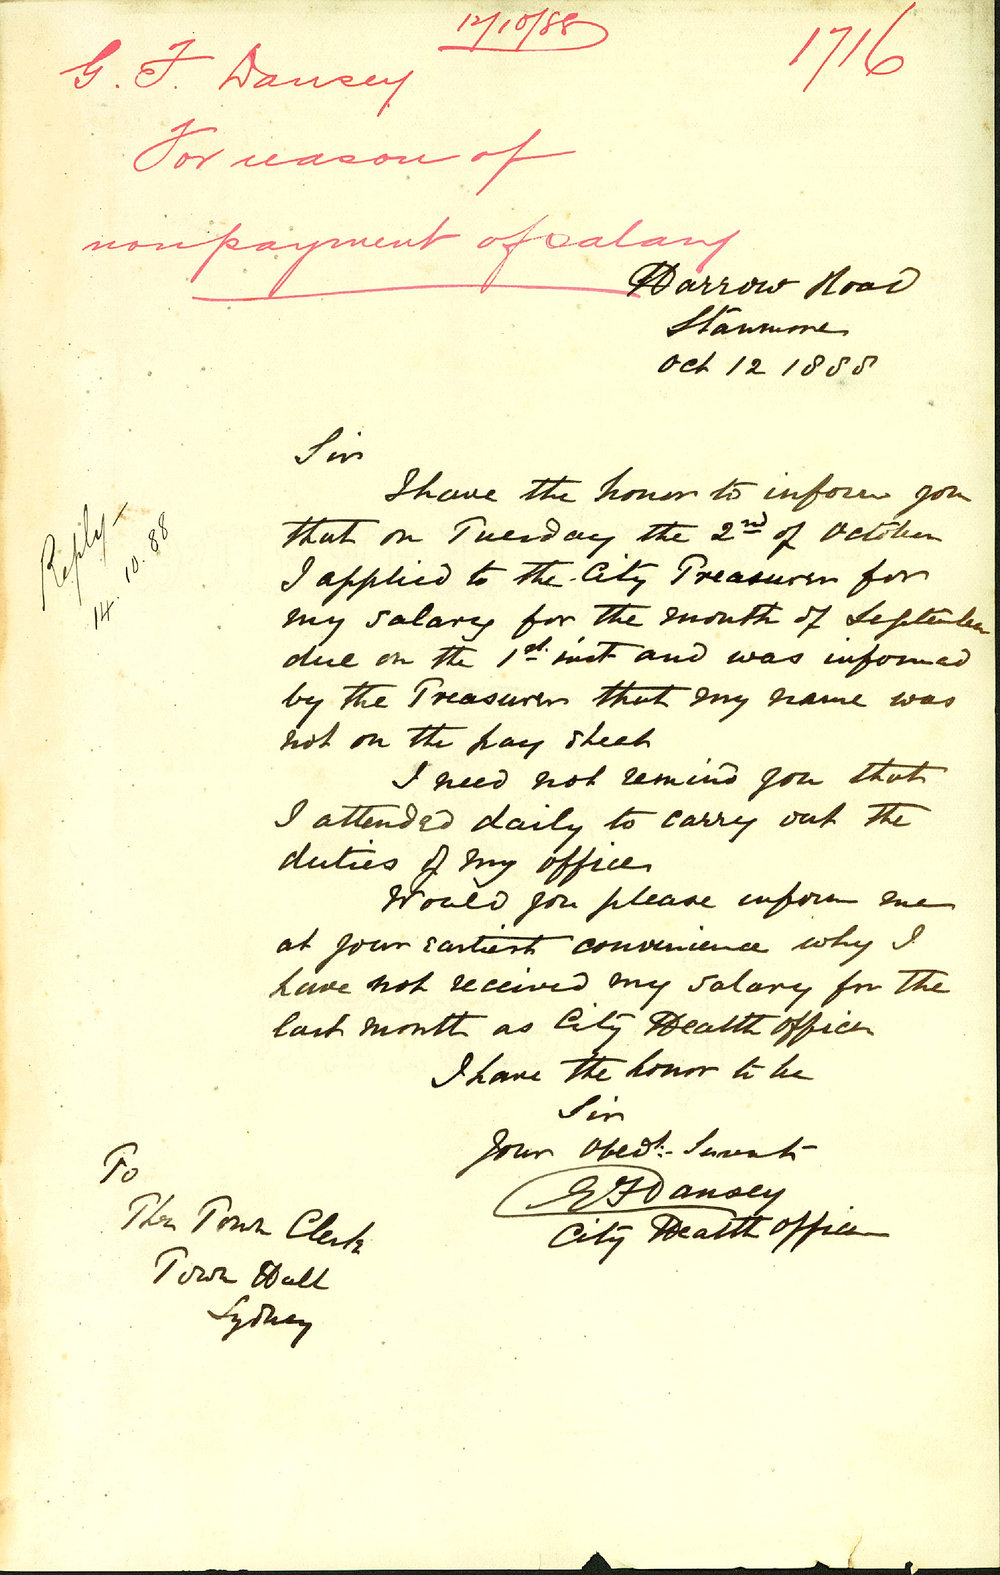 12/10/88
1716
G. F. Dansey
For reason of
nonpayment of salary
Harrow Road
Stanmore
Oct 12 1888
Sir
I have the honor to inform you
that on Tuesday the 2nd of October
I applied to the City Treasurer for
my salary for the month of September
due on the 1st inst and was informed
by the Treasurer that my name was
not on the pay sheet
I need not remind you that
I attended daily to carry out the
duties of my office
Would you please inform me
at your earliest convenience why I
have not received my salary for the
last month as City Health Officer
I have the honor to be
Sir
Your Obedt. Servant
G F Dansey
City Health Officer
Reply
14.10.88
To
The Town Clerk
Town Hall
Sydney